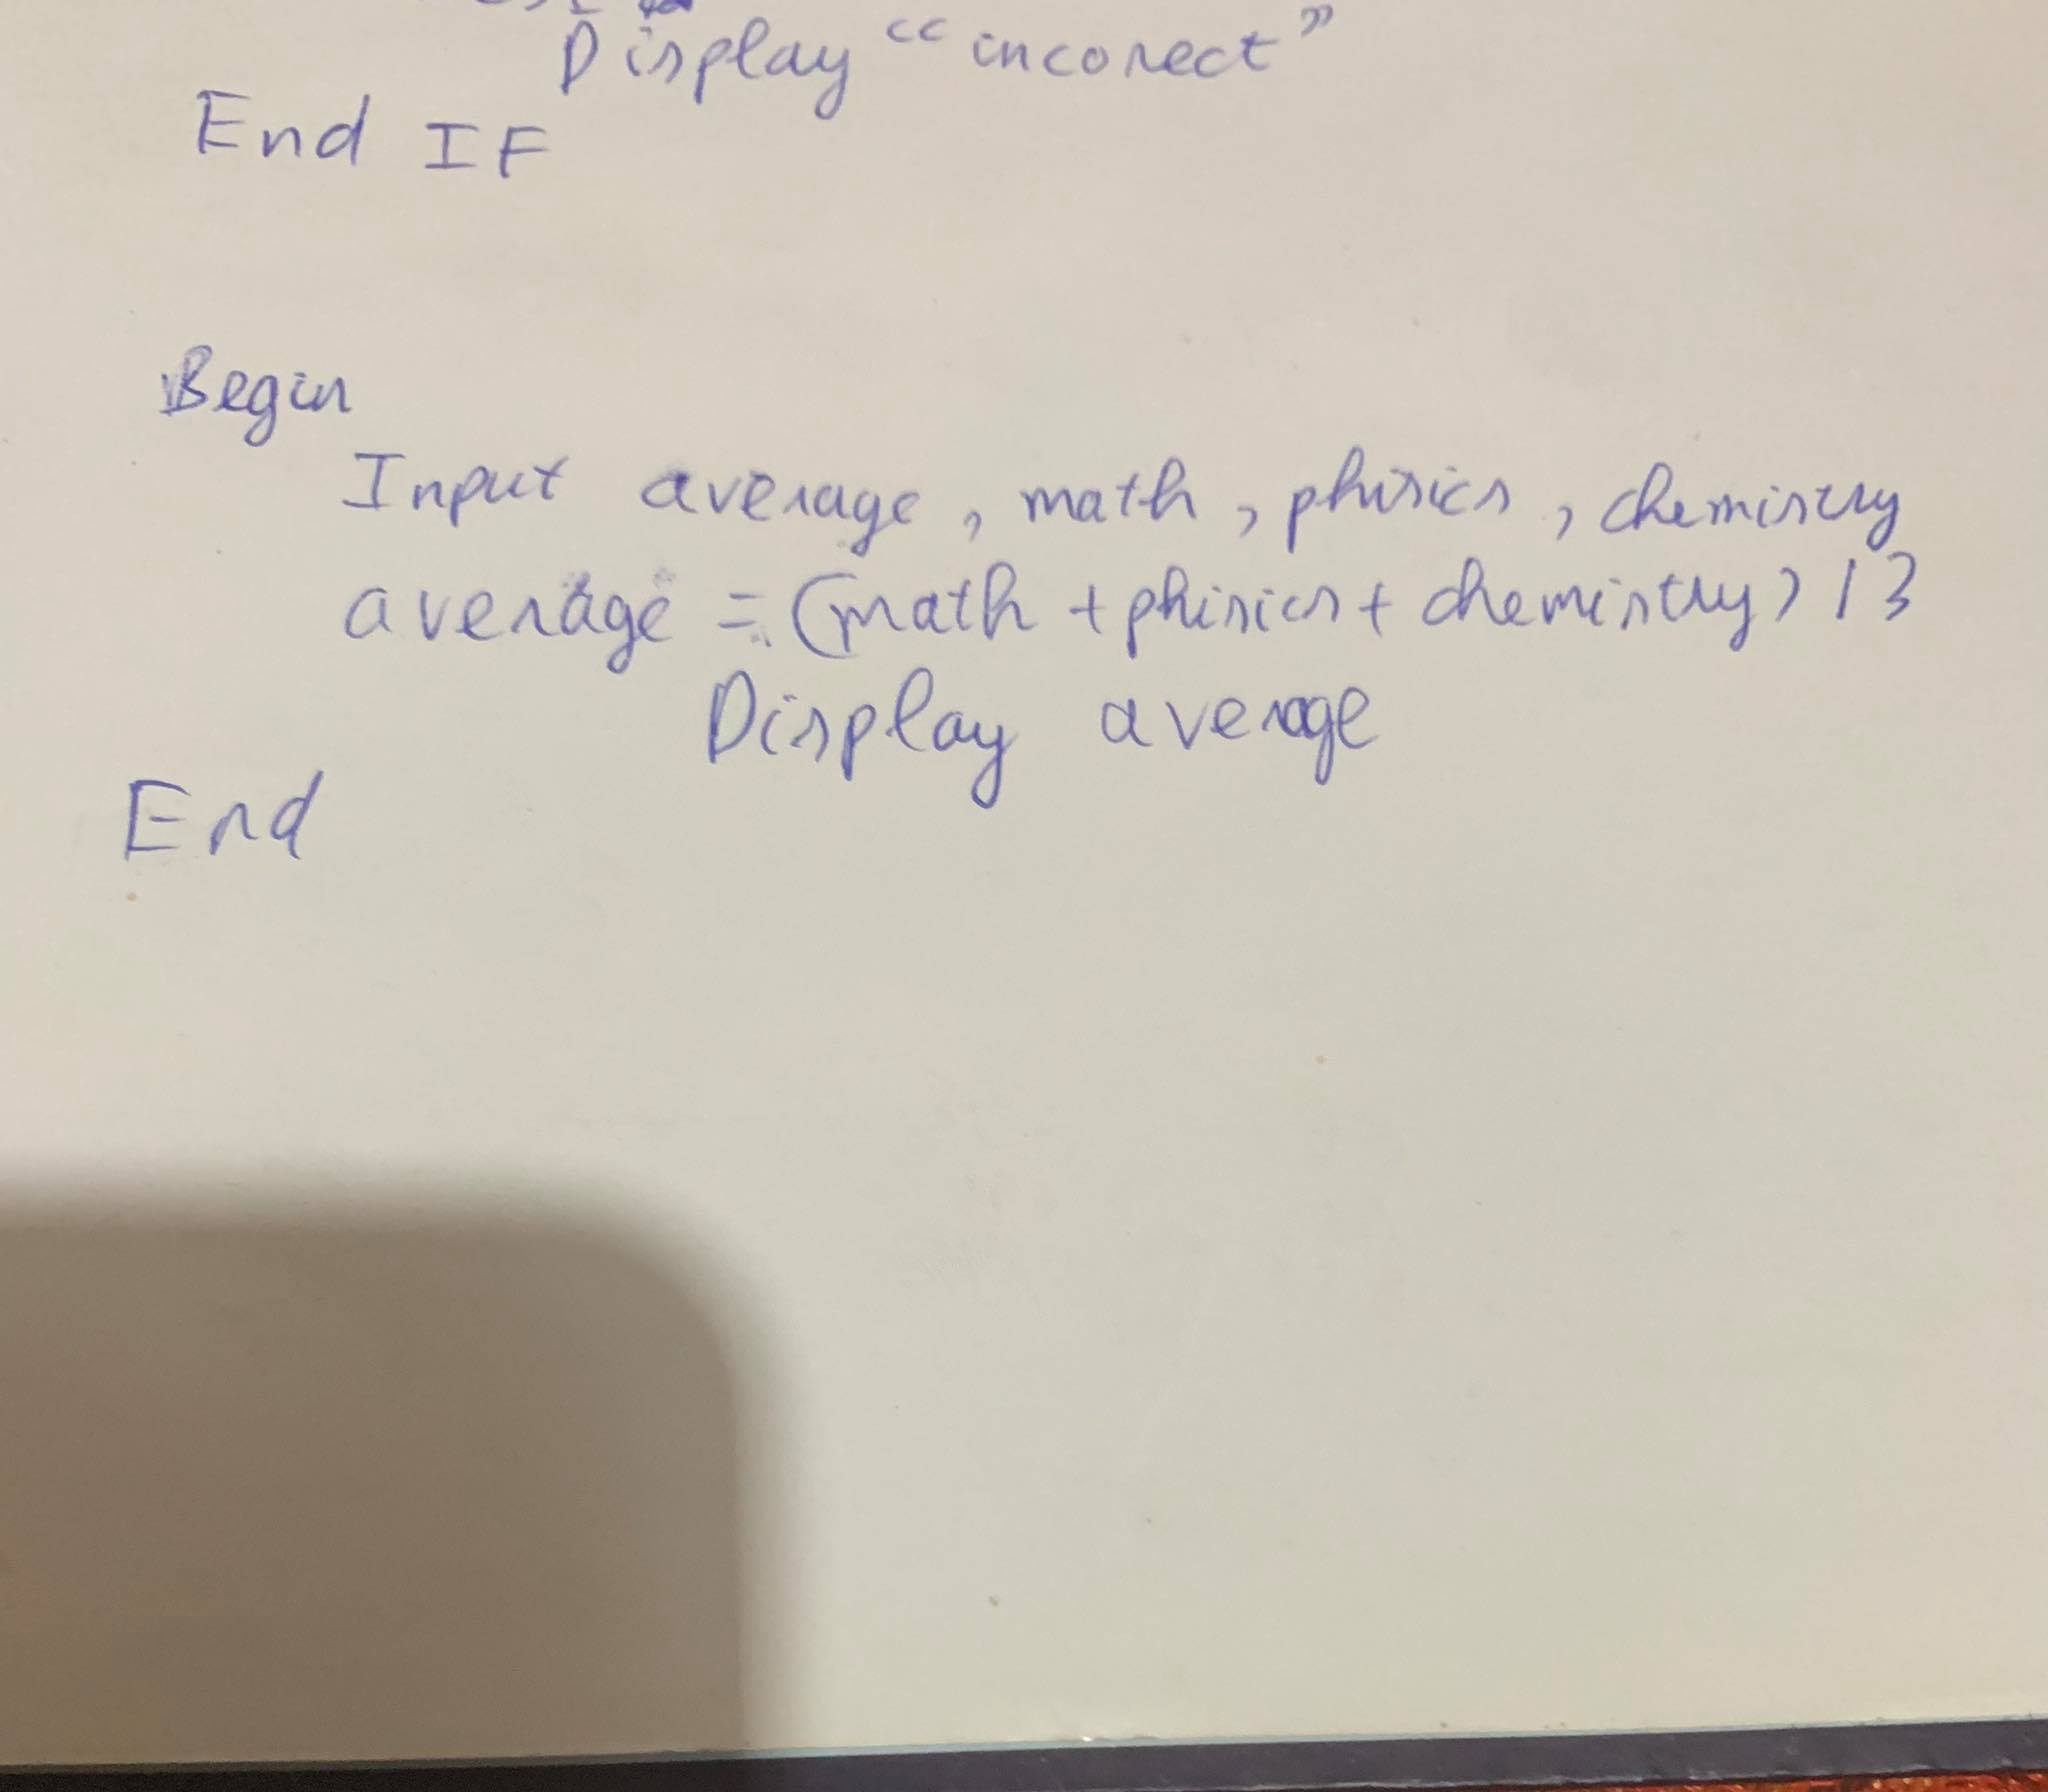 Display “incorect”
End IF
Begin
Input average, math, phisics, chemistry
average = (math + phisics + chemistry) / 3
Display average
End